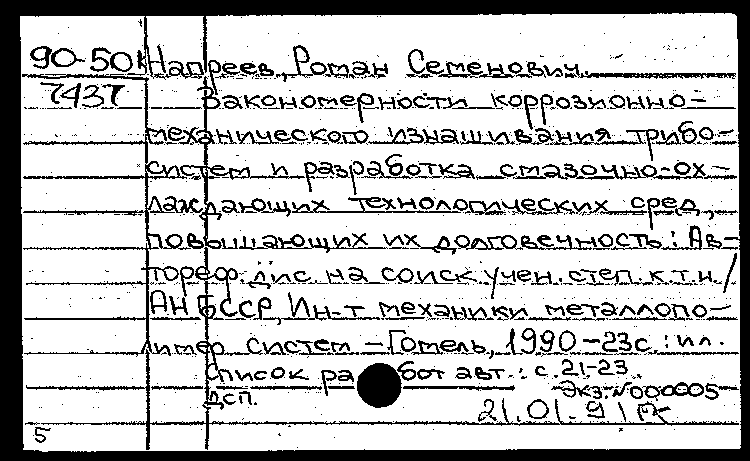 90-50к Напреев, Роман Семенович.
7437 Закономерности коррозионно-
механического изнашивания трибо-
систем и разработка смазочно-ох-
лаждающих технологических сред,
повышающих их долговечность: Ав-
тореф. дис. на соиск. учен. степ. к.т.н./
АН БССР, Ин-т механики металлопо-
лимер систем - Гомель, 1990-23с.: ил.
Список ра бот авт.: с. 21-23.
ДСП. Экз. №000005
21.01.91
5